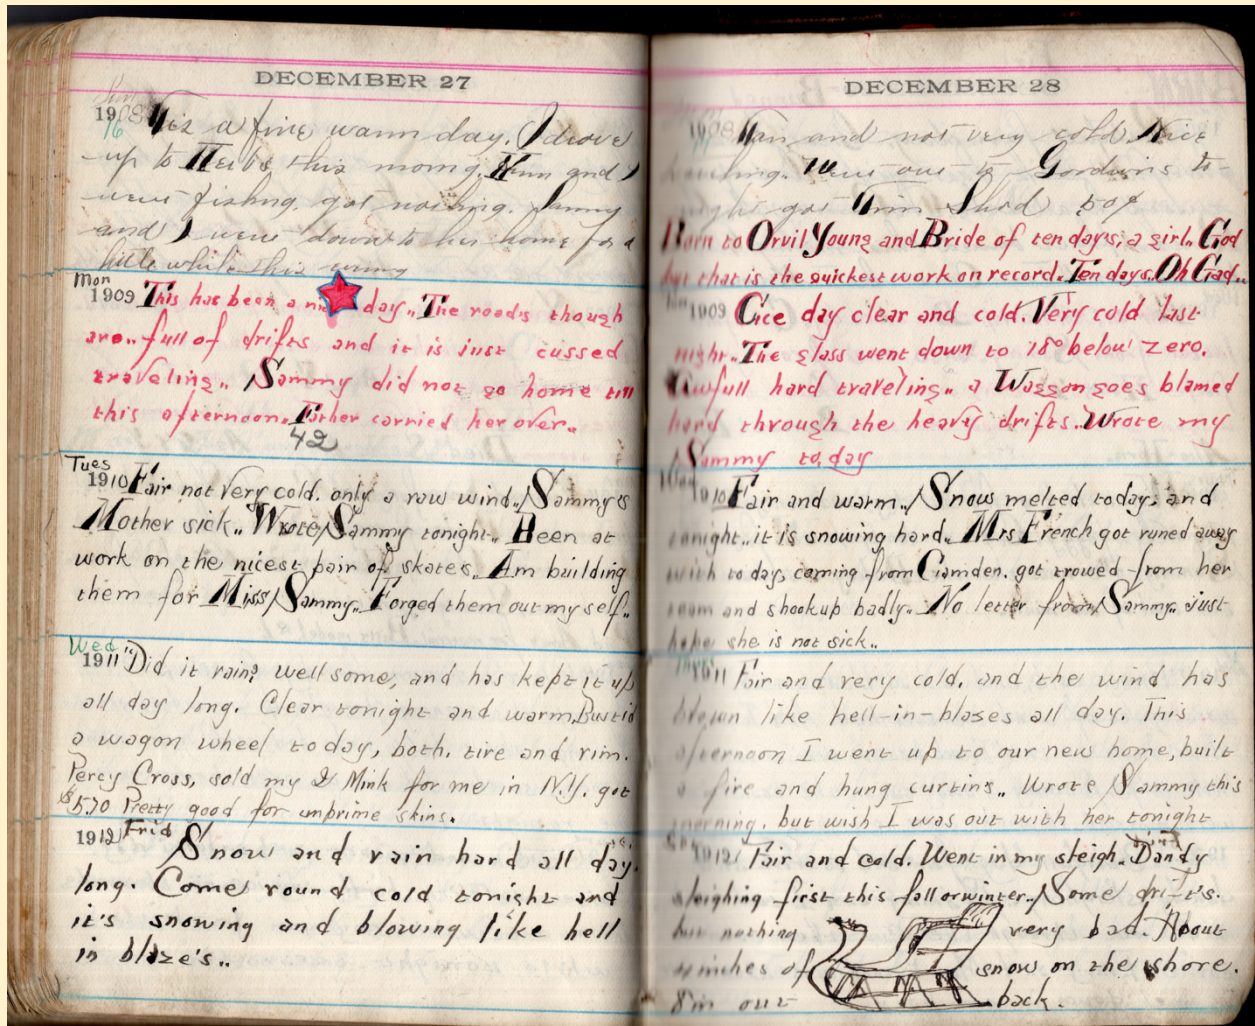 DECEMBER 27
Sun
1908 Was a fine warm day. I drove
16
up to Herbs this morng. Winn and I
were fishng. got nothing. Sammy
and I were down to her home for a
little while this evning
Mon
1909 This has been a day.. The roads though
are.. full of drifts and it is just cussed
traveling.. Sammy did not go home till
this afternoon.. Father carried her over..
42
Tues
1910 Fair not very cold. only a raw wind.. Sammy's
Mother sick.. Wrote Sammy tonight.. Been at
work on the nicest pair of skates. Am building
them for Miss Sammy.. Forged them out my self..
Wed
1911 "Did it rain? well some, and has kept it up
all day long. Clear tonight and warm. Bustid
a wagon wheel today, both. tire and rim.
Percy Cross, sold my 2 Mink for me in N.Y. got
$5.70 Pretty good for unprime skins.
1912 Frid Snow and rain hard all day.
long. Come round cold tonight and
it's snowing and blowing like hell
in blaze's..
DECEMBER 28
1908 and not very cold. Nice
. Were out to Goodwins to-
night got Shod 50¢
Born to Orvil Young and Bride of ten days, a girl.. God
but that is the quickest work on record.. Ten days.. Oh Gad..
1909 Gice day clear and cold. Very cold last
night.. The glass went down to 18° below zero.
Awfull hard traveling.. a Waggon goes blamed
hard through the heavy drifts.. Wrote my
Sammy to, day
Wed
1910 Fair and warm.. Snow melted today, and
tonight.. it is snowing hard.. Mrs French got runed away
with to day, coming from Camden. got trowed from her
team and shook up badly.. No letter from Sammy.. just
hope she is not sick..
1911 Fair and very cold, and the wind has
blown like hell-in-blases all day. This
afternoon I went up to our new home, built
a fire and hung curtins.. Wrote Sammy this
morning. but wish I was out with her tonight
1912 Fair and cold. Went in my sleigh.. Dandy
sleighing first this fall or winter.. Some drift's.
but nothing very bad. About
4 inches of snow on the shore.
8 in out back.